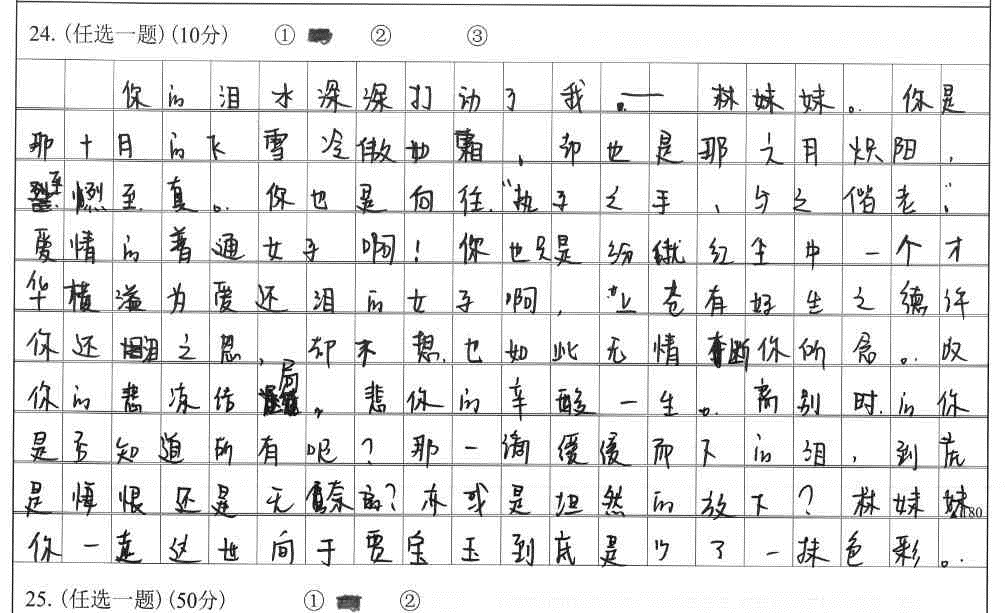 24. (任选一题) (10分) ① ② ③
你的泪水深深打动了我。——林妹妹。你是
那十月的飞雪冷傲如霜，却也是那六月炽阳，
至燃至真。你也是向往“执子之手，与之偕老”
爱情的普通女子啊！你也只是纷繞红尘中一个才
华横溢为爱还泪的女子啊，“上苍有好生之德许
你还泪之恩，却不想也如此无情斩断你所念。叹
你的悲冻结局，悲你的辛酸一生。离别时的你
是否知道所有呢？那一滴缓缓而下的泪，到底
是悔恨还是无奈的？亦或是坦然的放下？林妹妹
180
你一直这世间于贾宝玉到底是少了一抹色彩。
25. (任选一题) (50分) ① ②